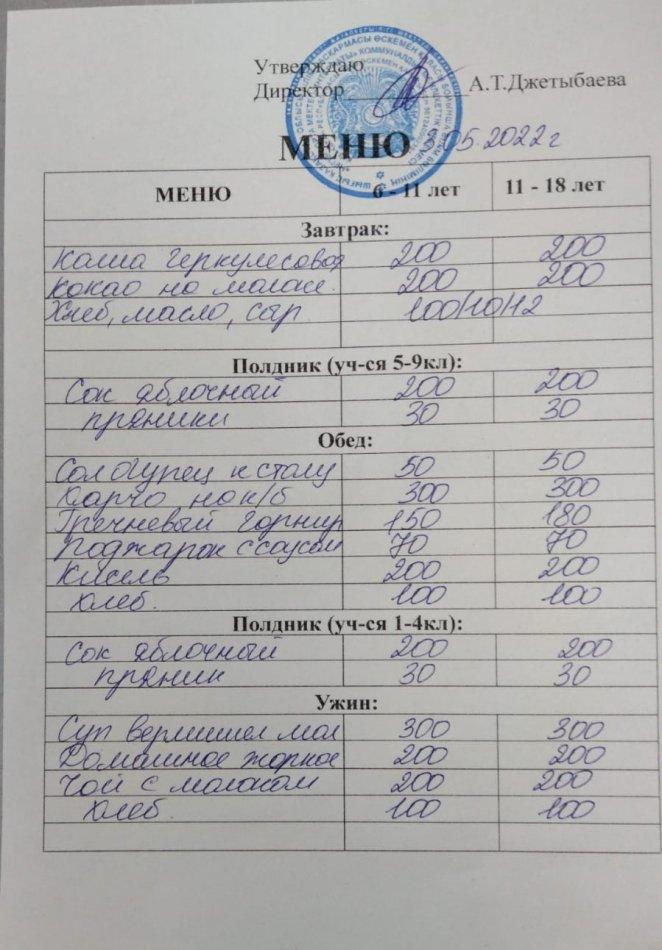 Утверждаю
Директор А.Т.Джетыбаева
МЕНЮ 05.2022г
МЕНЮ 6 - 11 лет 11 - 18 лет
Завтрак:
Каша геркулесовая 200 200
Какао на молоке. 200 200
Хлеб, масло, сыр 100/10/12
Полдник (уч-ся 5-9кл):
Сок яблочный 200 200
пряники 30 30
Обед:
Сол огурец к столу 50 50
Харчо на к/б 300 300
Гречневый гарнир 150 180
Поджарок с соусом 70 70
Кисель 200 200
хлеб. 100 100
Полдник (уч-ся 1-4кл):
Сок яблочный 200 200
пряник 30 30
Ужин:
Суп вермишел мол 300 300
Домашнее жаркое 200 200
Чай с молоком 200 200
хлеб. 100 100